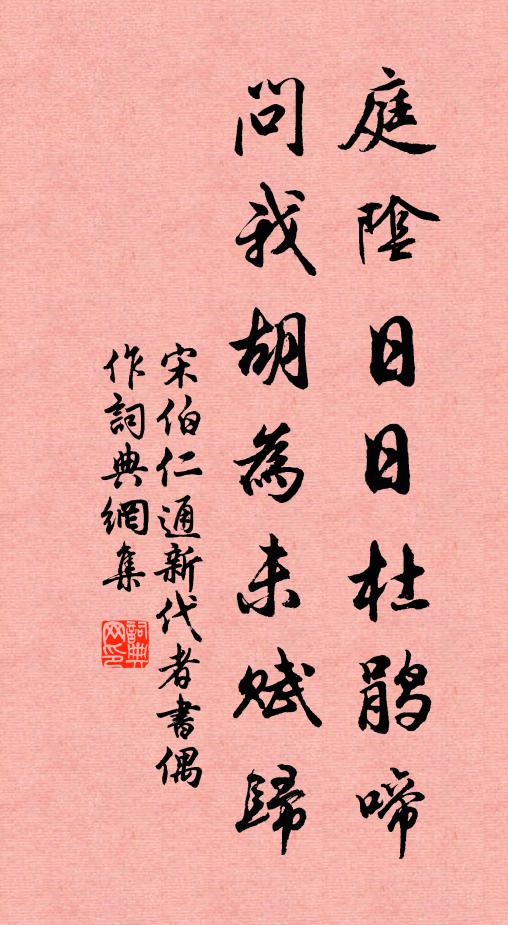 庭陰日日杜鵑啼
問我胡為未賦歸
宋伯仁通新代者書偶
作詞典網集
詞典
网印